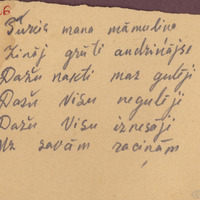 6
Šurcis mana māmulina
Zināj grūti audzinājse
Dažu nakti maz gulēji
Dažu Višu negulēji
Dažu Višu iznesāji
Uz savām rociņām